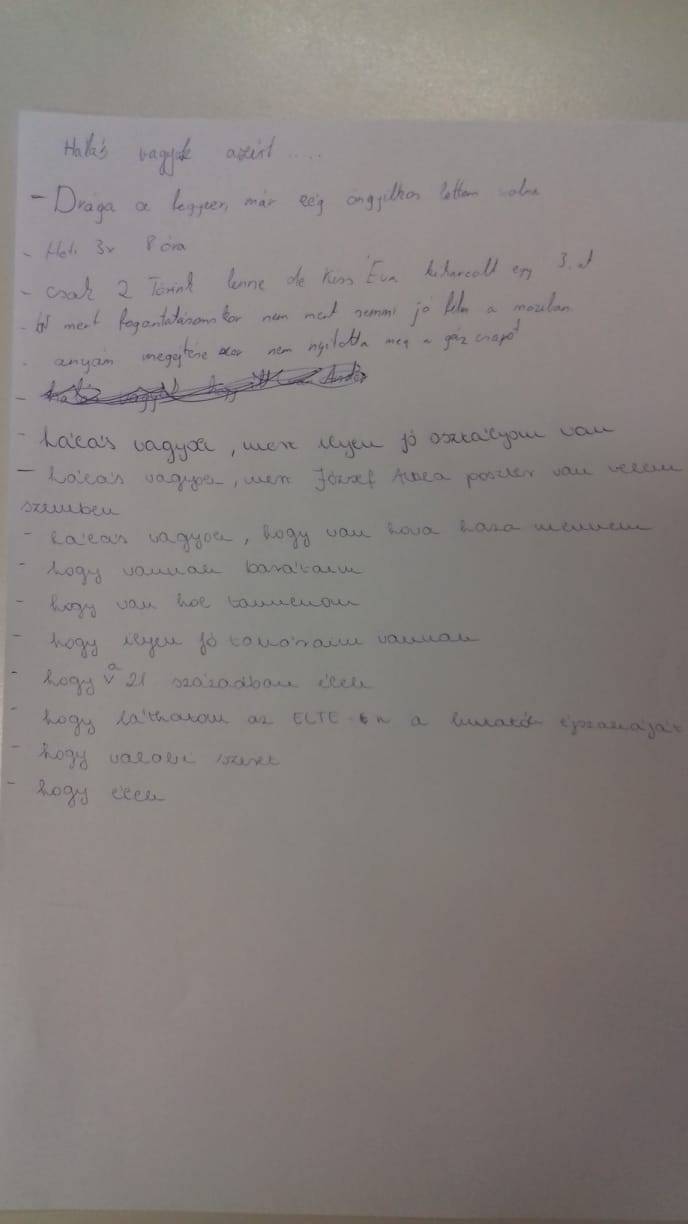 Hálás vagyok azért ....
- Drága a fegyver, már rég öngyilkos lettem volna
- Heti 3x 8 óra
- csak 2 Törink lenne de Kiss Éva kiharcolt egy 3.-t
- mert fogantatásomkor nem ment semmi jó film a moziban
- anyám megejtése nem nyitotta meg a gáz csapot
-
- hálás vagyok, mert ilyen jó osztályom van
- hálás vagyok, mert József Attila poszter van velem
szemben
- hálás vagyok, hogy van hova haza mennem
- hogy vannak barátaim
- hogy van hol tanulnom
- hogy ilyen jó tanáraim vannak
- hogy a 21 században élek
- hogy láthatom az ELTE-én a kutatók éjszakáját
- hogy valaki szeret
- hogy élek